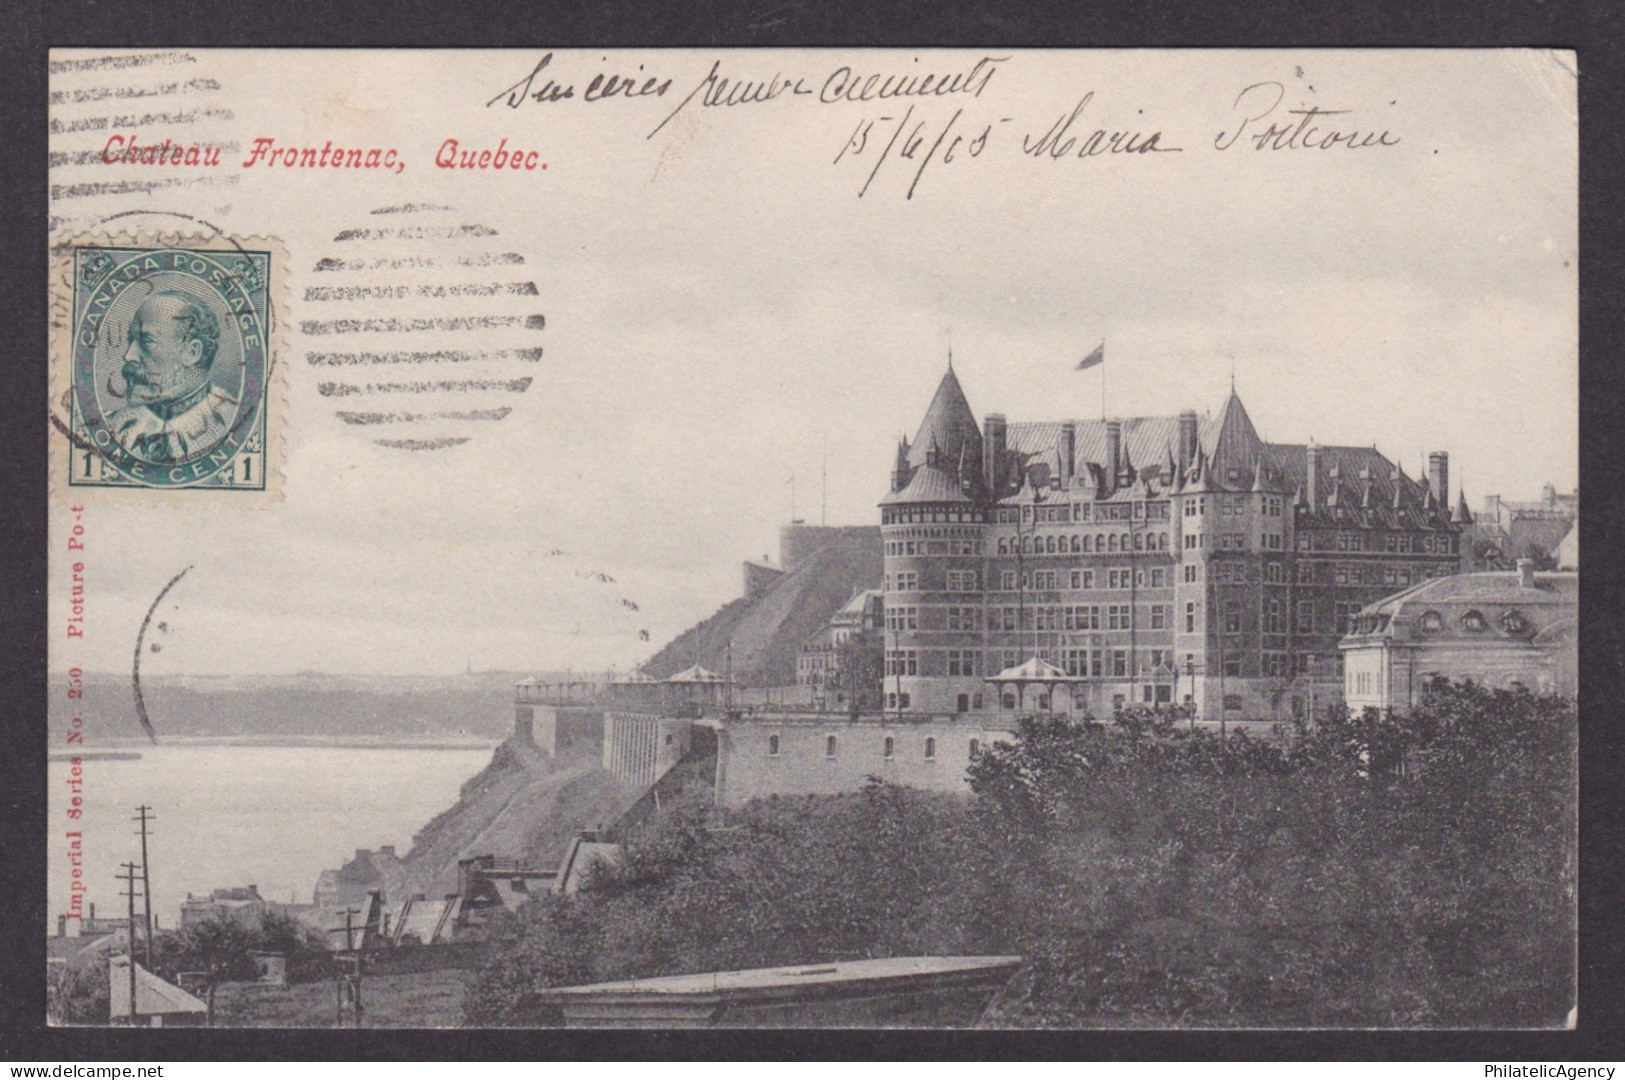 Sincères remerciements
15/6/05 Maria
Chateau Frontenac, Quebec.
CANADA POSTAGE
JU
ONE CENT
1 1
Imperial Series No. 250 Picture Post
© PhilatelicAgency
delcampe.net